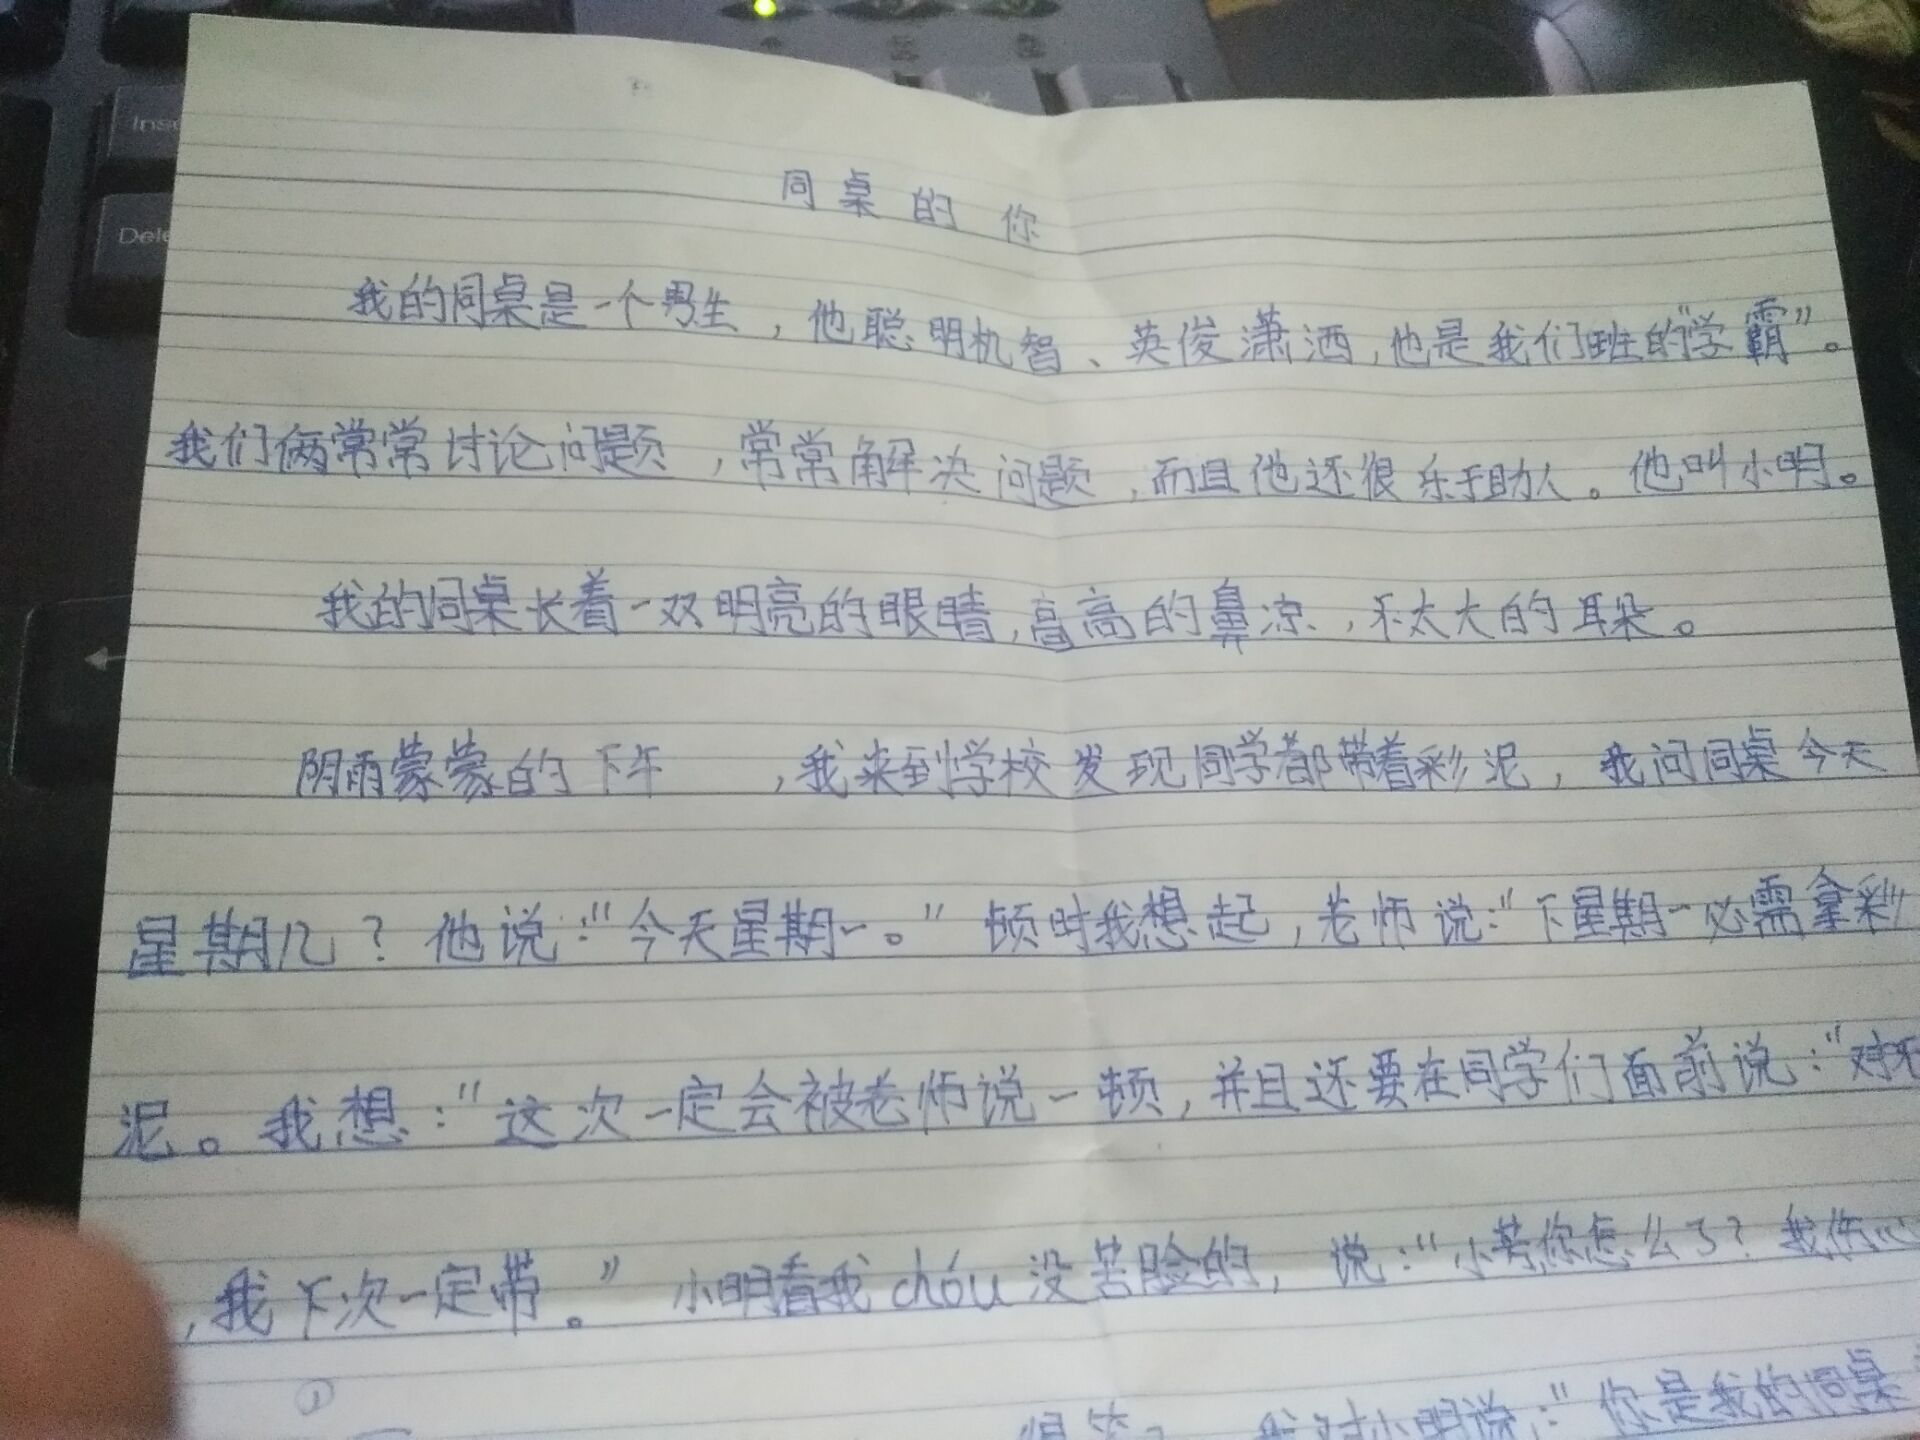 同桌的你
我的同桌是一个男生，他聪明机智、英俊潇洒，他是我们班的“学霸”。
我们俩常常讨论问题，常常解决问题，而且他还很乐于助人。他叫小明。
我的同桌长着一双明亮的眼睛，高高的鼻凉，不太大的耳朵。
阴雨蒙蒙的下午，我来到学校发现同学都带着彩泥，我问同桌今天
星期几？他说：“今天星期一。”顿时我想起，老师说：“下星期一必需拿彩
泥。我想：“这次一定会被老师说一顿，并且还要在同学们面前说：“对不
，我下次一定带。”小明看我chóu没苦脸的，说：“小芳你怎么了？我
①
我对小明说：“你是我的同桌
Inse
Dele